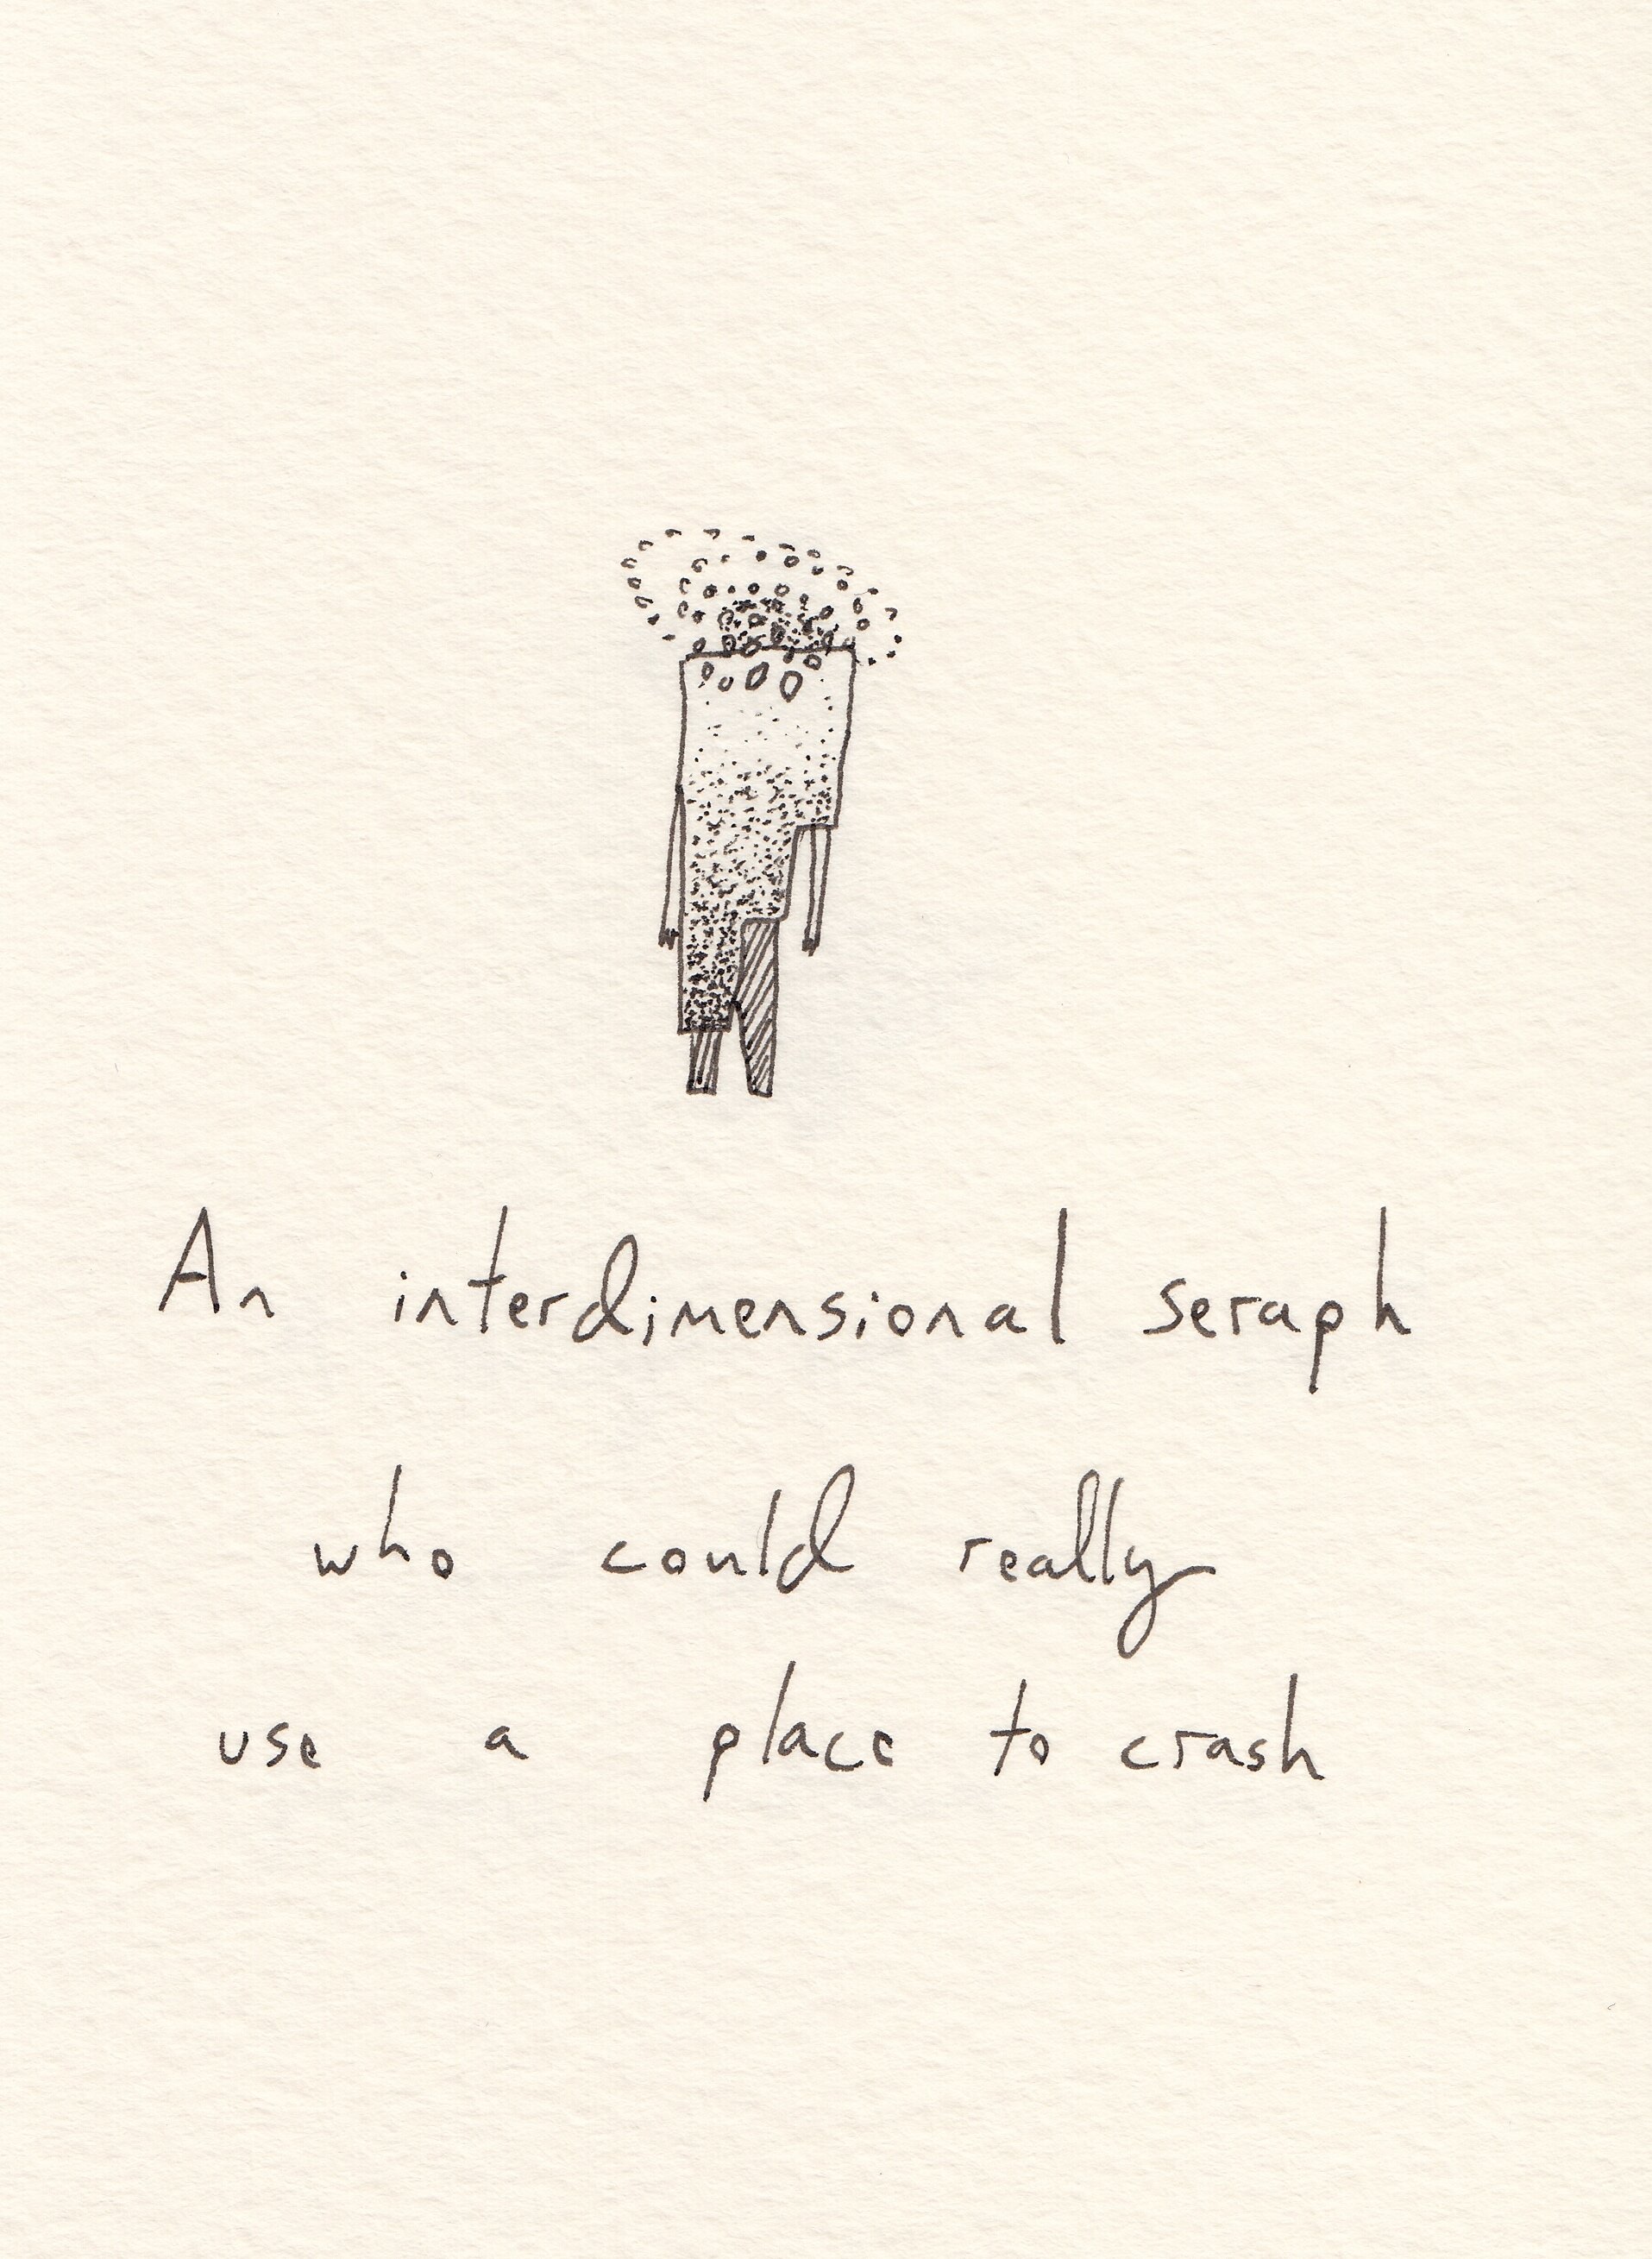 An interdimensional seraph
who could really
use a place to crash